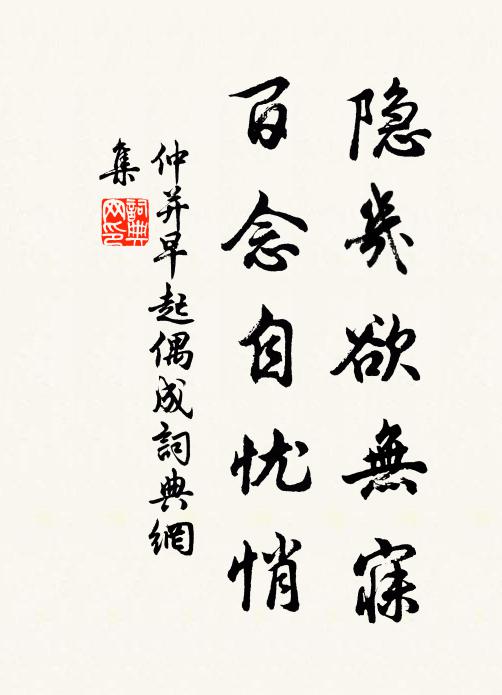 隐几欲無寐
百念自忧悄
仲并早起偶成詞典網
集
詞典網印